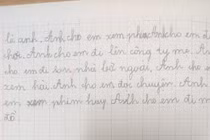 là anh. Anh cho em xem phim Anh cho em ăn
chơi. Anh cho em đi lên công ty mẹ. Anh
cho em đi lên nhà bà ngoại, Anh cho e
xem hài Anh cho em đọc chuyện. Anh
em xem phim hay Anh cho em đi m
đồ.